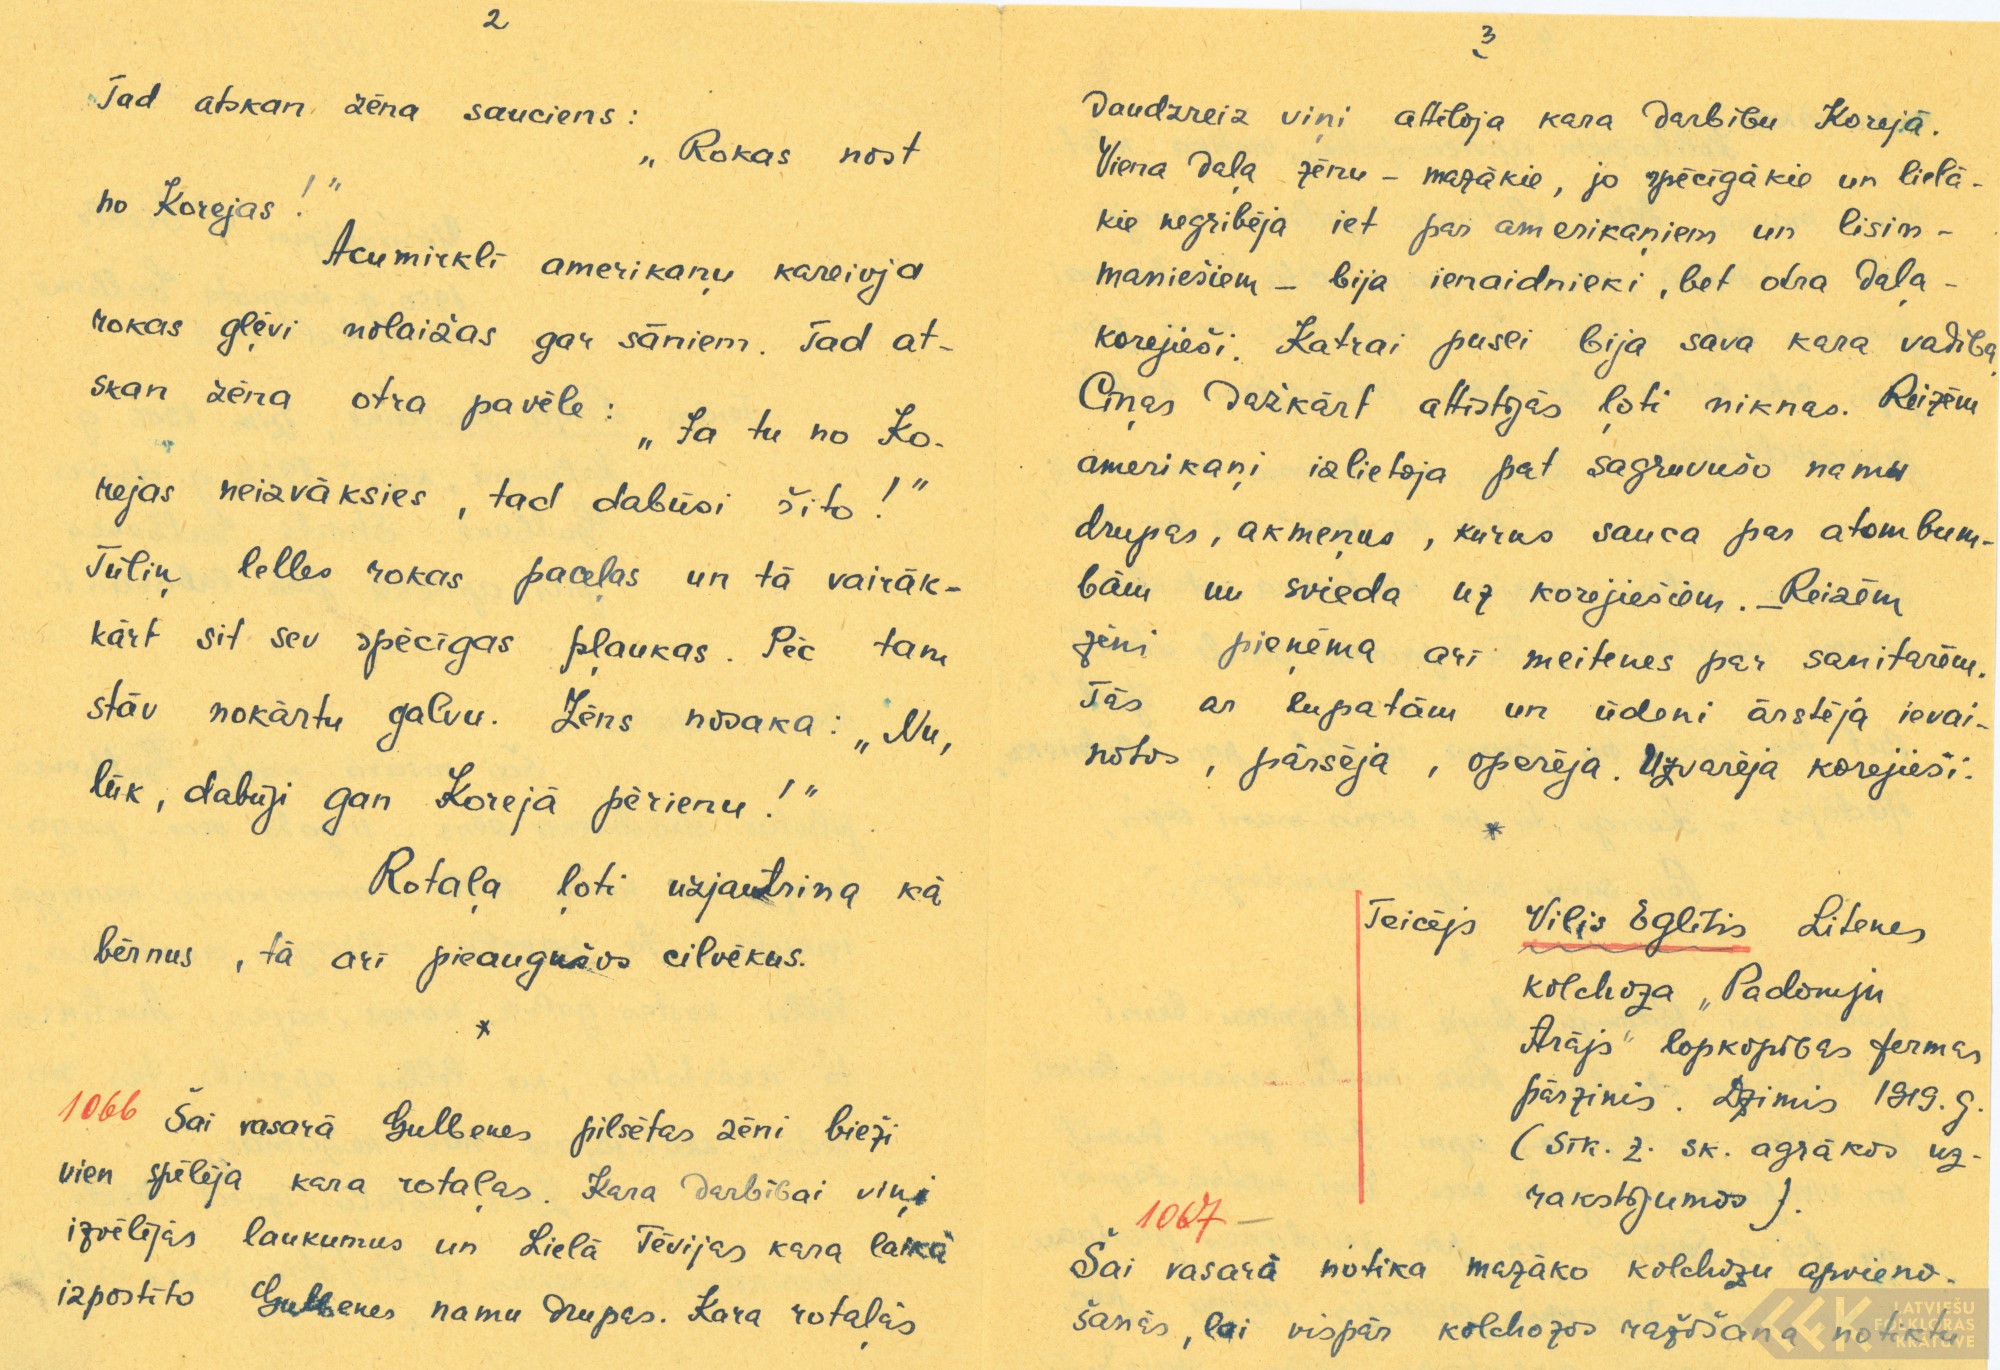 2
Tad atskan zēna sauciens:
„Rokas nost
no Korejas!”
Acumirklī amerikaņu kareivja
rokas gļēvi nolaižas gar sāniem. Tad at-
skan zēna otra pavēle:
„Ja tu no Ko-
rejas neizvāksies, tad dabūsi šito!”
Tūliņ lelles rokas paceļas un tā vairāk-
kārt sit sev spēcīgas pļaukas. Pēc tam
stāv nokārtu galvu. Zēns nosaka: „Nu,
lūk, dabūji gan Korejā pērienu!”
Rotaļa ļoti uzjautrina kā
bērnus, tā arī pieaugušos cilvēkus.
*
1066 Šai vasarā Gulbenes pilsētas zēni bieži
vien spēlēja kara rotaļas. Kara darbībai viņi
izvēlējās laukumus un Lielā Tēvijas kara laikā
izpostīto Gulbenes namu drupas. Kara rotaļās
3
daudzreiz viņi attēloja kara darbību Korejā.
Viena daļa zēnu – mazākie, jo spēcīgākie un lielā-
kie negribēja iet par amerikaņiem un lisin-
maniešiem – bija ienaidnieki, bet otra daļa –
korejieši. Katrai pusei bija sava kara vadība.
Cīņas dažkārt attīstījās ļoti niknas. Reizēm
amerikaņi izlietoja pat sagruvušo namu
drupas, akmeņus, kurus sauca par atombum-
bām un svieda uz korejiešiem. – Reizēm
zēni pieņēma arī meitenes par sanitarēm.
Tās ar lupatām un ūdeni ārstēja ievai-
notos, pārsēja, operēja. Uzvarēja korejieši.
*
Teicējs Vilis Eglītis Litenes
kolchoza „Padomju
Arājs” lopkopības fermas
pārzinis. Dzimis 1919. g.
(Sīk. z. sk. agrākos uz-
rakstījumos).
1067 –
Šai vasarā notika mazāko kolchozu apvieno-
šanās, lai vispār kolchozos ražošana notiktu
LATVIEŠU
FOLKLORAS
KRĀTUVE